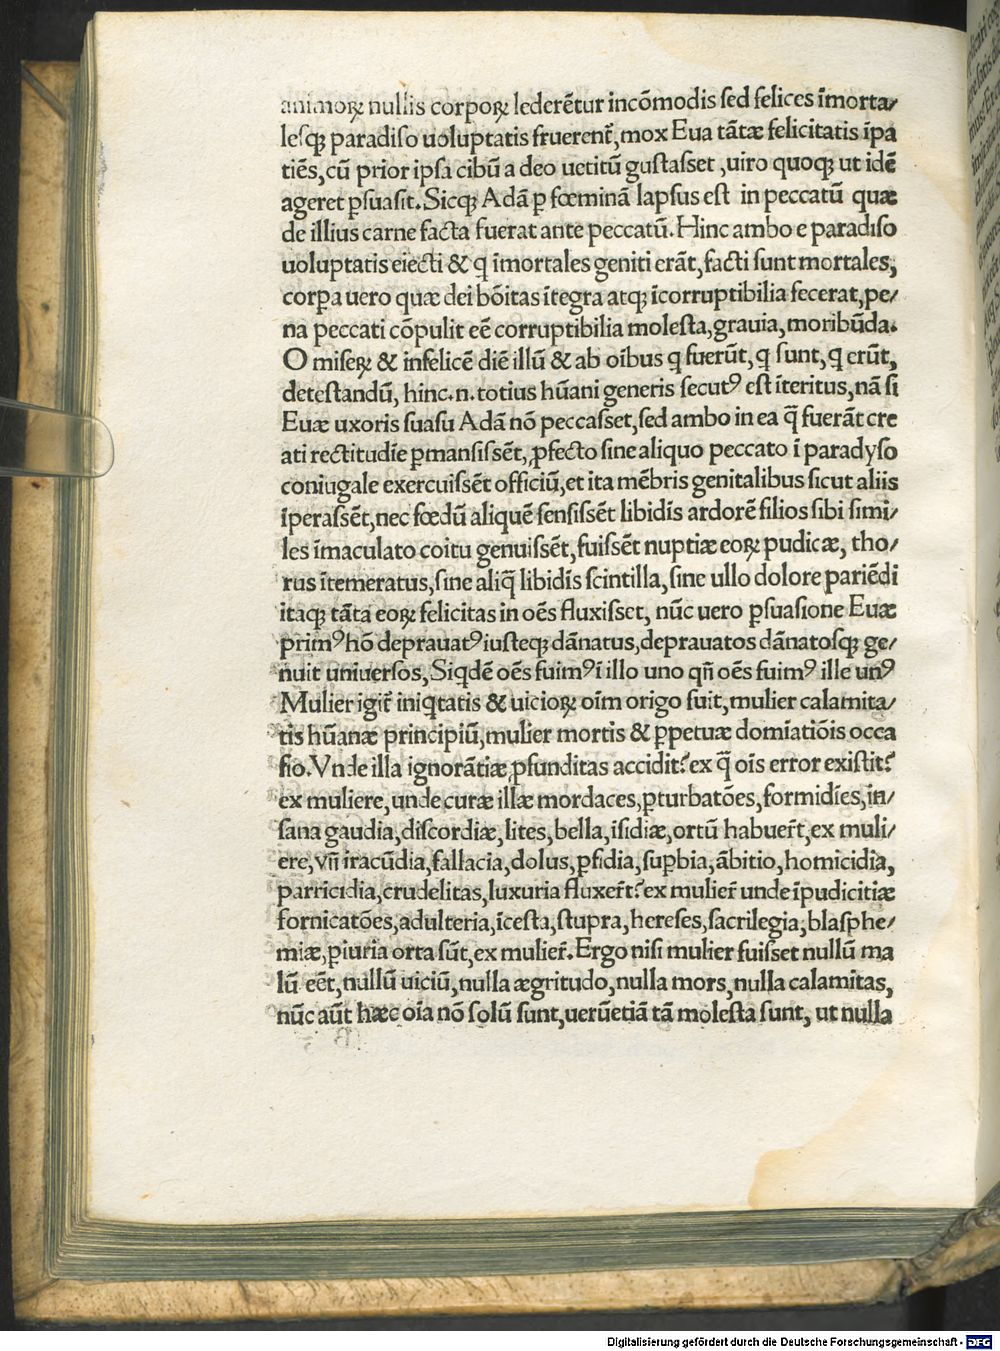 animoꝝ nullis corpoꝝ lederẽtur incõmodis ſed felices ĩmorta/
leſqꝫ paradiſo uoluptatis fruerent̃, mox Eua tãtæ felicitatis ĩpa
tiẽs, cũ prior ipſa cibũ a deo uetitũ guſtaſſet, uiro quoqꝫ ut idẽ
ageret ꝑſuaſit. Sicqꝫ Adã ꝑ fœminã lapſus eſt in peccatũ quæ
de illius carne facta fuerat ante peccatũ. Hinc ambo e paradiſo
uoluptatis eiecti & q ĩmortales geniti erãt, facti ſunt mortales,
corpa uero quæ dei bõitas ĩtegra atqꝫ ĩcorruptibilia fecerat, pe/
na peccati cõpulit eẽ corruptibilia moleſta, grauia, moribũda.
O miſeꝝ & infelicẽ diẽ illũ & ab oĩbus q fuerũt, q ſunt, q erũt,
deteſtandũ, hinc .n. totius hũani generis ſecutꝰ eſt ĩteritus, nã ſi
Euæ uxoris ſuaſu Adã nõ peccaſſet, ſed ambo in ea q̃ fuerãt cre
ati rectitudĩe ꝑmanſiſſẽt, ꝓfecto ſine aliquo peccato ĩ paradyſo
coniugale exercuiſſẽt officiũ, et ita mẽbris genitalibus ſicut aliis
ĩperaſſẽt, nec fœdũ aliquẽ ſenſiſſẽt libidĩs ardorẽ filios ſibi ſimi/
les ĩmaculato coitu genuiſſẽt, fuiſſẽt nuptiæ eoꝝ pudicæ, tho/
rus ĩtemeratus, ſine aliq̃ libidĩs ſcintilla, ſine ullo dolore pariẽdi
itaqꝫ tãta eoꝝ felicitas in oẽs fluxiſſet, nũc uero ꝑſuaſione Euæ
primꝰ hõ deprauatꝰ iuſteqꝫ dãnatus, deprauatos dãnatoſqꝫ ge/
nuit uniuerſos, Siqdẽ oẽs fuimꝰ ĩ illo uno qñ oẽs fuimꝰ ille unꝰ
Mulier igit̃ iniqtatis & uicioꝝ oĩm origo fuit, mulier calamita/
tis hũanæ principiũ, mulier mortis & ꝑpetuæ domĩatiõis occa
ſio. Vnde illa ignorãtiæ ꝓfunditas accidit? ex q̃ oĩs error exiſtit?
ex muliere, unde curæ illæ mordaces, ꝑturbatões, formidĩes, in/
ſana gaudia, diſcordiæ, lites, bella, ĩſidiæ, ortũ habuer̃t, ex muli/
ere, vñ iracũdia, fallacia, dolus, ꝑfidia, ſuꝑbia, ãbitio, homicidia,
parricidia, crudelitas, luxuria fluxer̃t? ex mulier̃ unde ĩpudicitiæ
fornicatões, adulteria, ĩceſta, ſtupra, hereſes, ſacrilegia, blaſphe/
miæ, ꝑiuria orta ſũt, ex mulier̃. Ergo niſi mulier fuiſſet nullũ ma
lũ eẽt, nullũ uiciũ, nulla ægritudo, nulla mors, nulla calamitas,
nũc aũt hæc oĩa nõ ſolũ ſunt, uerũetiã tã moleſta ſunt, ut nulla
Digitalisierung gefördert durch die Deutsche Forschungsgemeinschaft - DFG